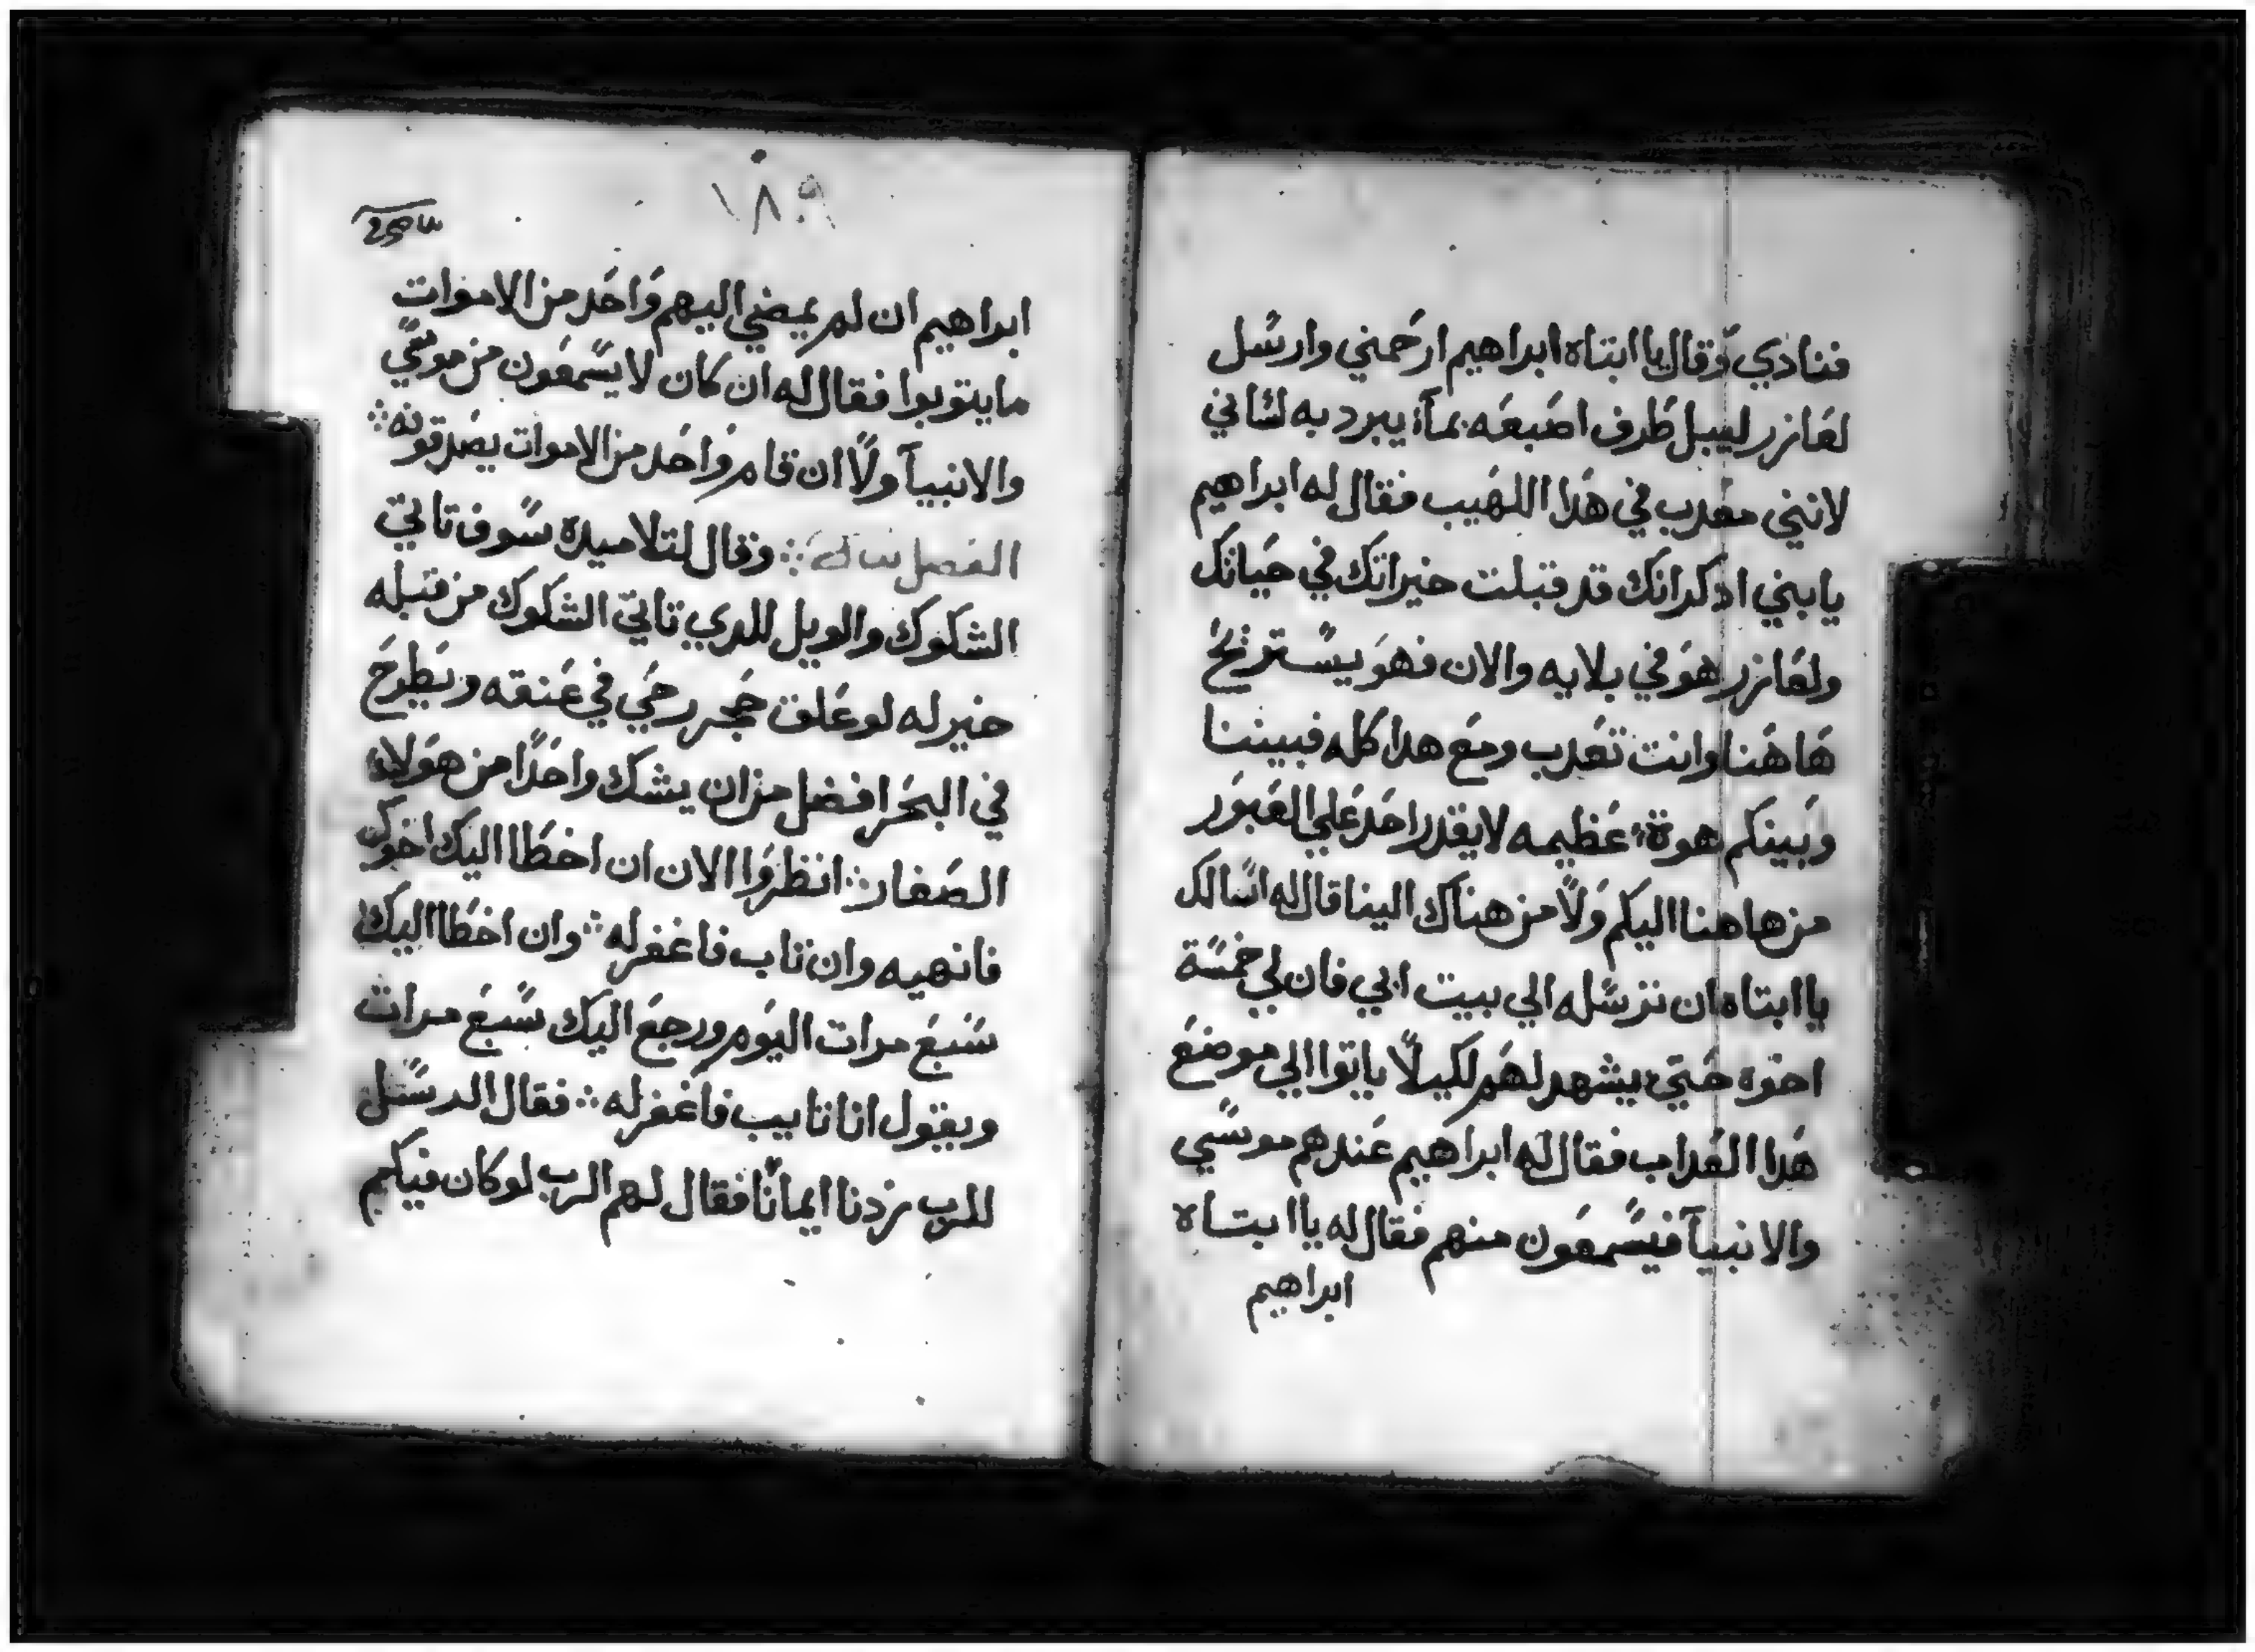 فنادي وقال يا ابتاه ابراهيم ارحمني وارسل
لعازر ليبل طرف اصبعه بمآء يبرد به لساني
لانني معدب في هدا اللهيب فقال له ابراهيم
يابني ادكر انك قد قبلت خيراتك في حياتك
ولعازر هو في بلايه والان فهو يستريح
هاهنا وانت تعدب ومع هدا كله فبيننا
وبينكم هوة عظيمه لا يقدر احد علي العبور
من هاهنا اليكم ولا من هناك الينا قال له اسالك
يا ابتاه ان ترسله الي بيت ابي فان لي خمسة
اخوه حتي يشهد لهم لكيلا ياتوا الي موضع
هدا العداب فقال له ابراهيم عندهم موسي
والانبيآ فيسمعون منهم فقال له يا ابتاه
ابراهيم
١٨٩
ابراهيم ان لم يمضي اليهم واحد من الاموات
ما يتوبوا فقال له ان كان لا يسمعون من موسي
والانبيآ ولا ان قام واحد من الاموات يصدقونه ❖
الفصل ❖ وقال لتلاميده سوف تاتي
الشكوك والويل للدي تاتي الشكوك من قبله
خير له لو علق حجر رحي في عنقه ويطرح
في البحر افضل من ان يشك واحدا من هولاء
الصغار ❖ انظروا الان ان اخطا اليك اخوك
فانهيه وان تاب فاغفر له ❖ وان اخطا اليك
سبع مرات اليوم ورجع اليك سبع مرات
ويقول انا تايب فاغفر له ❖ فقال الرسل
للرب زدنا ايمانا فقال لهم الرب لو كان فيكم